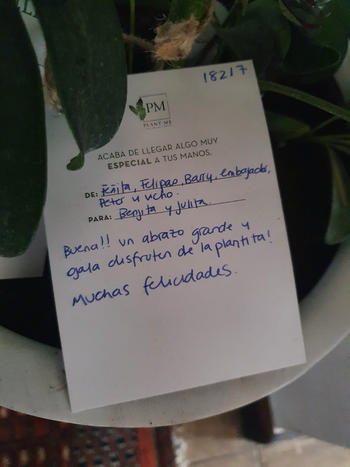 18217
PM
PLANT ME
ACABA DE LLEGAR ALGO MUY
ESPECIAL A TUS MANOS.
DE: Feñita, Felipao, Barry, embajador,
Peter y ucho.
PARA: Benjita y Julita.
Buena!! un abrazo grande y
gala disfruten de la plantita!
Muchas felicidades.